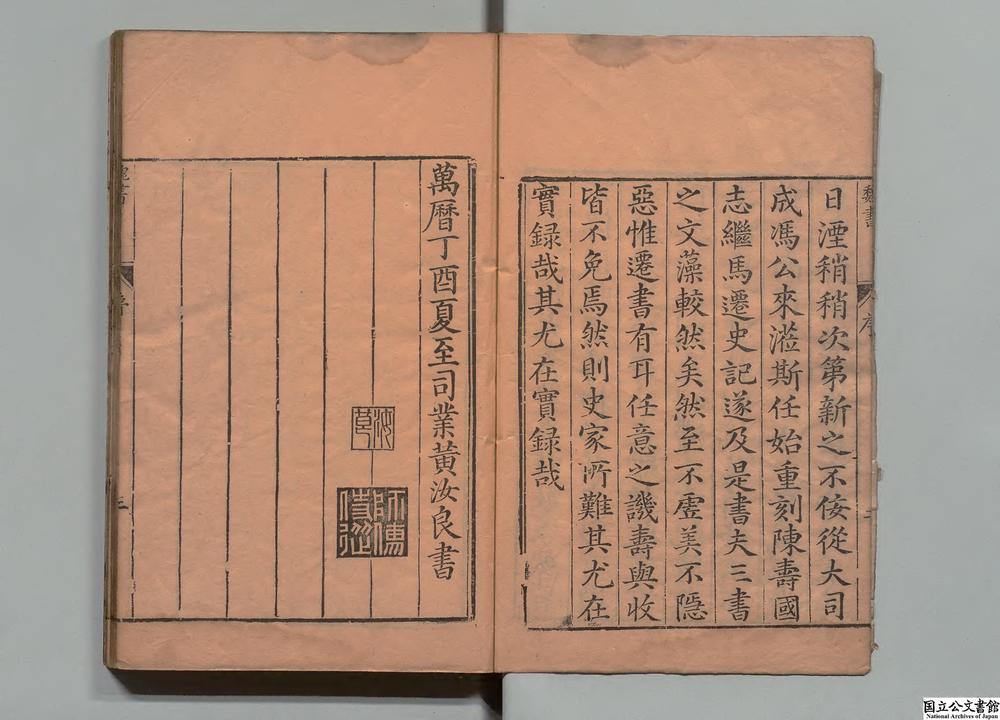 魏書
序
日湮稍稍次第新之不佞從大司
成馮公來涖斯任始重刻陳壽國
志繼馬遷史記遂及是書夫三書
之文藻較然矣然至不虛美不隱
惡惟遷書有耳任意之譏壽與收
皆不免焉然則史家所難其尤在
實録哉其尤在實録哉
萬曆丁酉夏至司業黃汝良書
師傅侍從
序
三
国立公文書館
National Archives of Japan